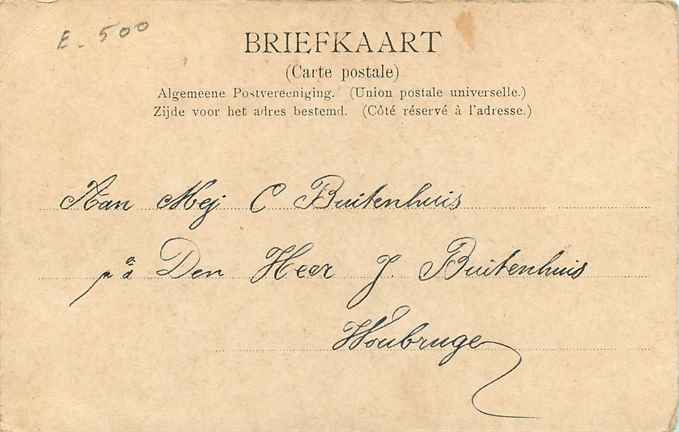 E. 500
BRIEFKAART
(Carte postale)
Algemeene Postvereeniging. (Union postale universelle.)
Zijde voor het adres bestemd. (Côté réservé à l'adresse.)
Aan Mej C Buitenhuis
p/a Den Heer J. Buitenhuis
Woubruge